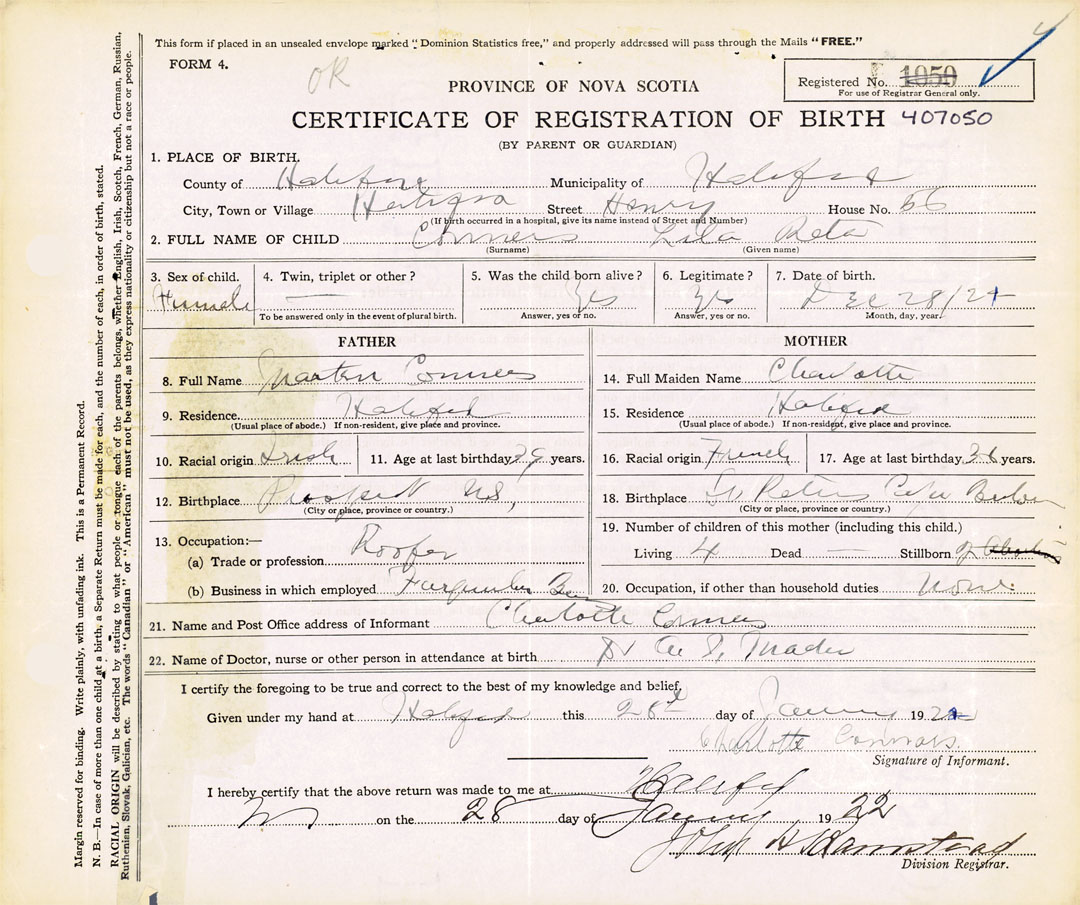 This form if placed in an unsealed envelope marked "Dominion Statistics free," and properly addressed will pass through the Mails "FREE."
FORM 4.
OK
PROVINCE OF NOVA SCOTIA
Registered No. 1050
For use of Registrar General only.
CERTIFICATE OF REGISTRATION OF BIRTH 407050
(BY PARENT OR GUARDIAN)
1. PLACE OF BIRTH.
County of Halifax Municipality of Halifax
City, Town or Village Halifax Street Henry House No. 56
(If birth occurred in a hospital, give its name instead of Street and Number)
2. FULL NAME OF CHILD Conners Lila Reta
(Surname) (Given name)
3. Sex of child. Female
4. Twin, triplet or other?
To be answered only in the event of plural birth.
5. Was the child born alive? Yes
Answer, yes or no.
6. Legitimate? Yes
Answer, yes or no.
7. Date of birth. Dec 28/21
Month, day, year.
FATHER
8. Full Name Martin Conners
9. Residence. Halifax
(Usual place of abode.) If non-resident, give place and province.
10. Racial origin Irish 11. Age at last birthday 39 years.
12. Birthplace Prospect N.S,
(City or place, province or country.)
13. Occupation:—
(a) Trade or profession Roofer
(b) Business in which employed Farquhar Bros
MOTHER
14. Full Maiden Name Charlotte
15. Residence Halifax
(Usual place of abode.) If non-resident, give place and province.
16. Racial origin French 17. Age at last birthday 36 years.
18. Birthplace St Peters Cape Breton
(City or place, province or country.)
19. Number of children of this mother (including this child.)
Living 4 Dead — Stillborn
20. Occupation, if other than household duties None
21. Name and Post Office address of Informant Charlotte Conners
22. Name of Doctor, nurse or other person in attendance at birth Dr A. I. Mader
I certify the foregoing to be true and correct to the best of my knowledge and belief,
Given under my hand at Halifax this 28th day of January 192
Charlotte Connors.
Signature of Informant.
I hereby certify that the above return was made to me at Halifax
on the 28 day of January 1922
John H Barnstead
Division Registrar.
Margin reserved for binding. Write plainly, with unfading ink. This is a Permanent Record.
N. B.—In case of more than one child at a birth, a Separate Return must be made for each, and the number of each, in order of birth, stated.
RACIAL ORIGIN will be described by stating to what people or tongue each of the parents belongs, whether English, Irish, Scotch, French, German, Russian,
Ruthenian, Slovak, Galician, etc. The words "Canadian" or "American" must not be used, as they express nationality or citizenship but not a race or people.